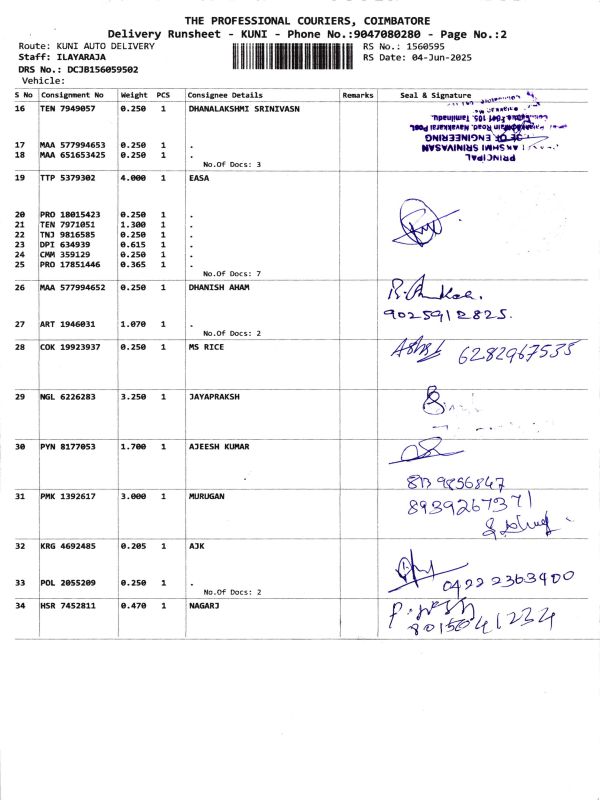 THE PROFESSIONAL COURIERS, COIMBATORE
Delivery Runsheet - KUNI - Phone No.:9047080280 - Page No.:2
Route: KUNI AUTO DELIVERY RS No.: 1560595
Staff: ILAYARAJA RS Date: 04-Jun-2025
DRS No.: DCJB156059502
Vehicle:
S No Consignment No Weight PCS Consignee Details Remarks Seal & Signature
16 TEN 7949057 0.250 1 DHANALAKSHMI SRINIVASN
17 MAA 577994653 0.250 1 .
18 MAA 651653425 0.250 1 .
No.Of Docs: 3
PRINCIPAL
LAKSHMI SRINIVASAN
OF ENGINEERING
Main Road, Navakkarai Post,
641 105. Tamilnadu.
19 TTP 5379302 4.000 1 EASA
20 PRO 18015423 0.250 1 .
21 TEN 7971051 1.300 1 .
22 TNJ 9816585 0.250 1 .
23 DPI 634939 0.615 1 .
24 CMM 359129 0.250 1 .
25 PRO 17851446 0.365 1 .
No.Of Docs: 7
26 MAA 577994652 0.250 1 DHANISH AHAM
9025912825.
27 ART 1946031 1.070 1 .
No.Of Docs: 2
28 COK 19923937 0.250 1 MS RICE 6282967535
29 NGL 6226283 3.250 1 JAYAPRAKSH
30 PYN 8177053 1.700 1 AJEESH KUMAR
8139856847
31 PMK 1392617 3.000 1 MURUGAN 8939267371
32 KRG 4692485 0.205 1 AJK
33 POL 2055209 0.250 1 . 0422 2363400
No.Of Docs: 2
34 HSR 7452811 0.470 1 NAGARJ
8015041234